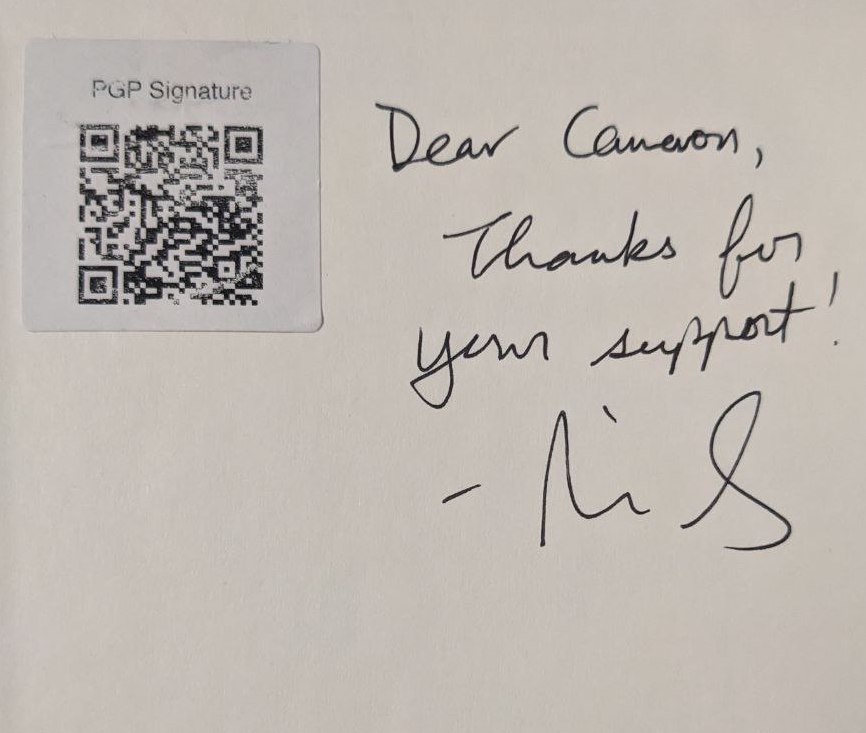 PGP Signature
Dear Cameron,
Thanks for
your support!
-